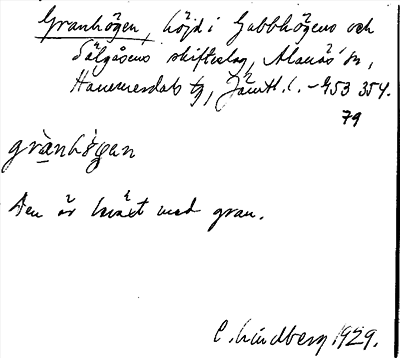 Granhögen, höjd i Gubbhögens och
Sälgåsens skifteslag, Alanäs sn,
Hammerdals tg, Jämtl. l. – 453 354.
79
grànhö̀gen
Den är beväxt med gran.
C. Lindberg 1929.